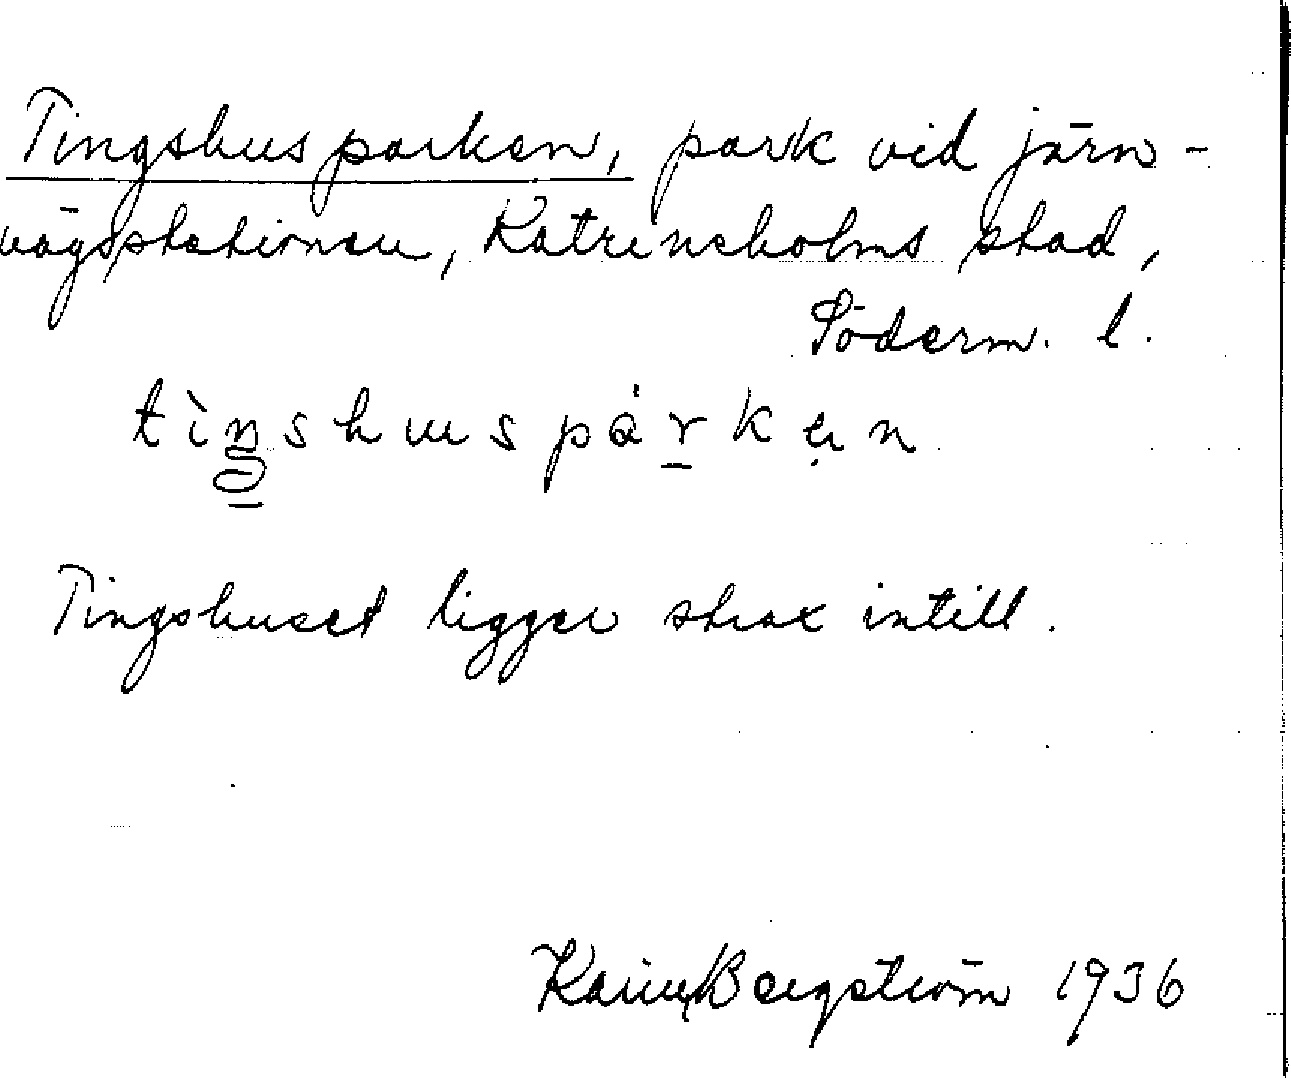 Tingshusparken, park vid järn-
vägsstationen, Katrineholms stad,
Söderm. l.
tìŋshuspárkən
Tingshuset ligger strax intill.
Karin Bergström 1936